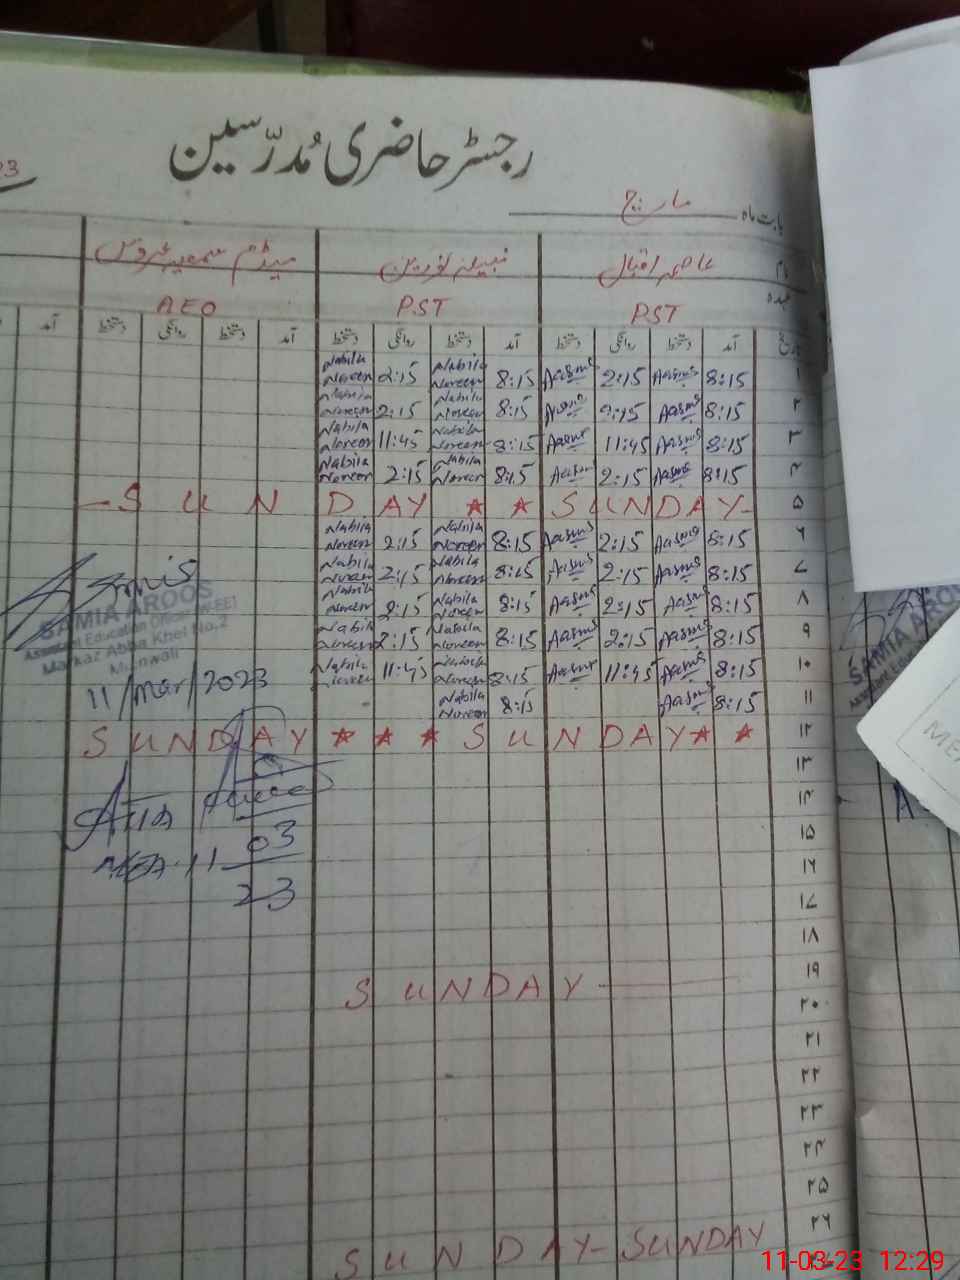 رجسٹر حاضری مُدرّسین
بابت ماہ مارچ
نام عاصمہ اقبال نبیلہ نورین میڈم سمیعہ عروس
عہدہ PST PST AEO
تاریخ آمد دستخط روانگی دستخط آمد دستخط روانگی دستخط آمد دستخط روانگی دستخط آمد
۱ 8:15 Aasma 2:15 Aasma 8:15 Nabila Noreen 2:15 Nabila Noreen
۲ 8:15 Aasma 2:15 Aasma 8:15 Nabila Noreen 2:15 Nabila Noreen
۳ 8:15 Aasma 11:45 Aasma 8:15 Nabila Noreen 11:45 Nabila Noreen
۴ 8:15 Aasma 2:15 Aasma 8:15 Nabila Noreen 2:15 Nabila Noreen
۵ - S U N D A Y ★ ★ S U N D A Y -
۶ 8:15 Aasma 2:15 Aasma 8:15 Nabila Noreen 2:15 Nabila Noreen
۷ 8:15 Aasma 2:15 Aasma 8:15 Nabila Noreen 2:15 Nabila Noreen
۸ 8:15 Aasma 2:15 Aasma 8:15 Nabila Noreen 2:15 Nabila Noreen
۹ 8:15 Aasma 2:15 Aasma 8:15 Nabila Noreen 2:15 Nabila Noreen
۱۰ 8:15 Aasma 11:45 Aasma 8:15 Nabila Noreen 11:45 Nabila Noreen
۱۱ 8:15 Aasma 8:15 Nabila Noreen
SAMIA AROOS
Assistant Education Officer W-EE1
Markaz Abba Khel No.2
Mianwali
11/Mar/2023
۱۲ S U N D A Y ★ ★ ★ S U N D A Y ★ ★
۱۳
۱۴
Atia
۱۵
MEA-11
03
23
۱۶
۱۷
۱۸
۱۹ S U N D A Y
۲۰
۲۱
۲۲
۲۳
۲۴
۲۵
۲۶ S U N D A Y - S U N D A Y
SAMIA AROO
MEA
11-03-23 12:29